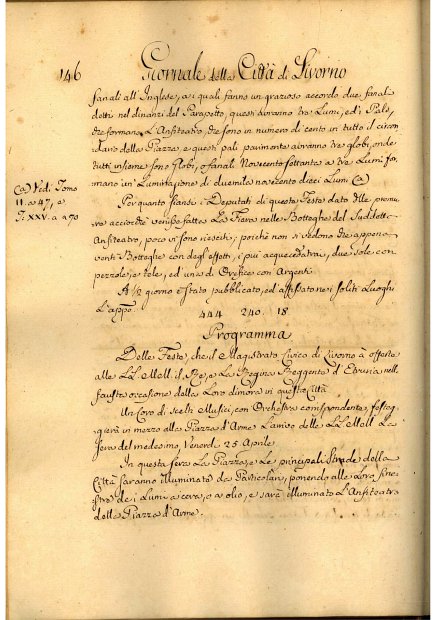 146 Giornale della Città di Livorno
fanali all'Inglese, a i quali fanno un grazioso accordo due fanal
detti nel dinanzi del Parapetto, questi avranno tre Lumi, ed i Pali,
che formano L'Anfiteatro, che sono in numero di cento in tutto il circon
dario della Piazza, e questi pali parimente avranno tre globi, onde
tutti insieme sono globi, o fanali Novecento settanta a tre Lumi for
mano un'Luminazione di duemila novecento dieci Lumi (a)
(a) Vedi Tomo
II. a 47, e
T. XXV. a a 70
Per quanto siansi i Deputati di queste Feste dato tutte le premu
re accordi venisse fatta La Fiera nelle Botteghe del Suddetto
Anfiteatro, poco vi sono riesciti; poichè non si vedono che appena
venti Botteghe con degl'effetti, i più acquacedratai, due sole con
pezzole, e tele, ed una d'Orefice con Argenti.
A ½ giorno è stato pubblicato, ed affissato ne i soliti Luoghi
L'appo
444 240. 18.
Programma
Delle Feste, che il Magistrato Civico di Livorno à offerto
alle LL. MM. il Re, e La Regina Reggente d'Etruria nella
fausta occasione della Loro dimora in questa Città
Un Coro di scelti Musici, con Orchestra corrispondente, festeg
gierà in mezzo alla Piazza d'Arme L'arrivo delle LL. MM. La
sera del medesimo Venerdì 25 Aprile.
In questa sera La Piazza, e Le principali Strade della
Città saranno illuminate da Particolari, ponendo alle Loro fine
stre de i Lumi a cera, o a olio, e sarà illuminato L'Anfiteatro
della Piazza d'Arme.